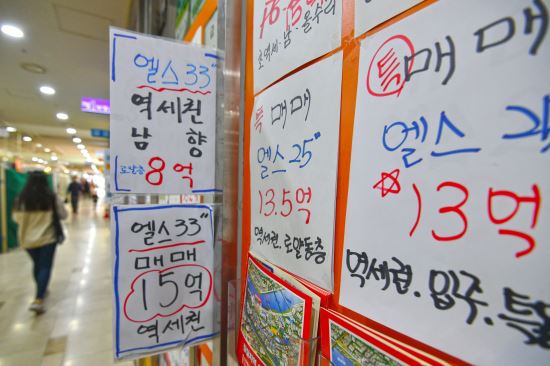 엘스 33"
역세권
남향
로얄층
8억
엘스 33"
매매
15억
역세권
로얄동
특 매매
엘스 25"
13.5억
역세권. 로얄동층
특 매매
엘스
13억
역세권. 입주.